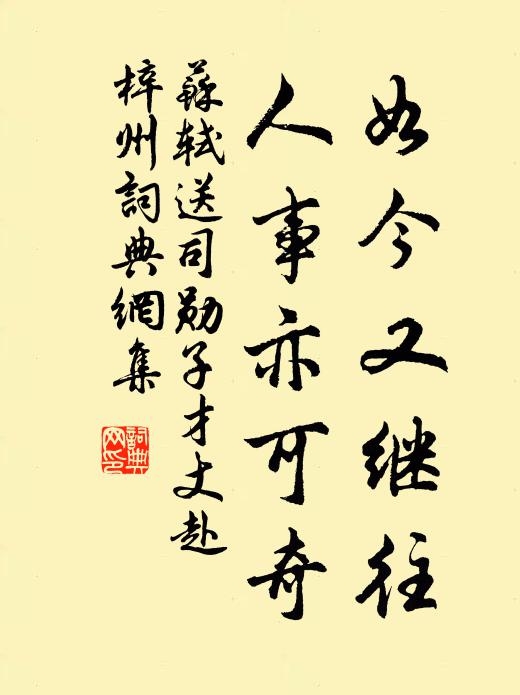 如今又继往
人事亦可奇
蘇軾送司勋子才丈赴
梓州詞典網集
詞典
网印